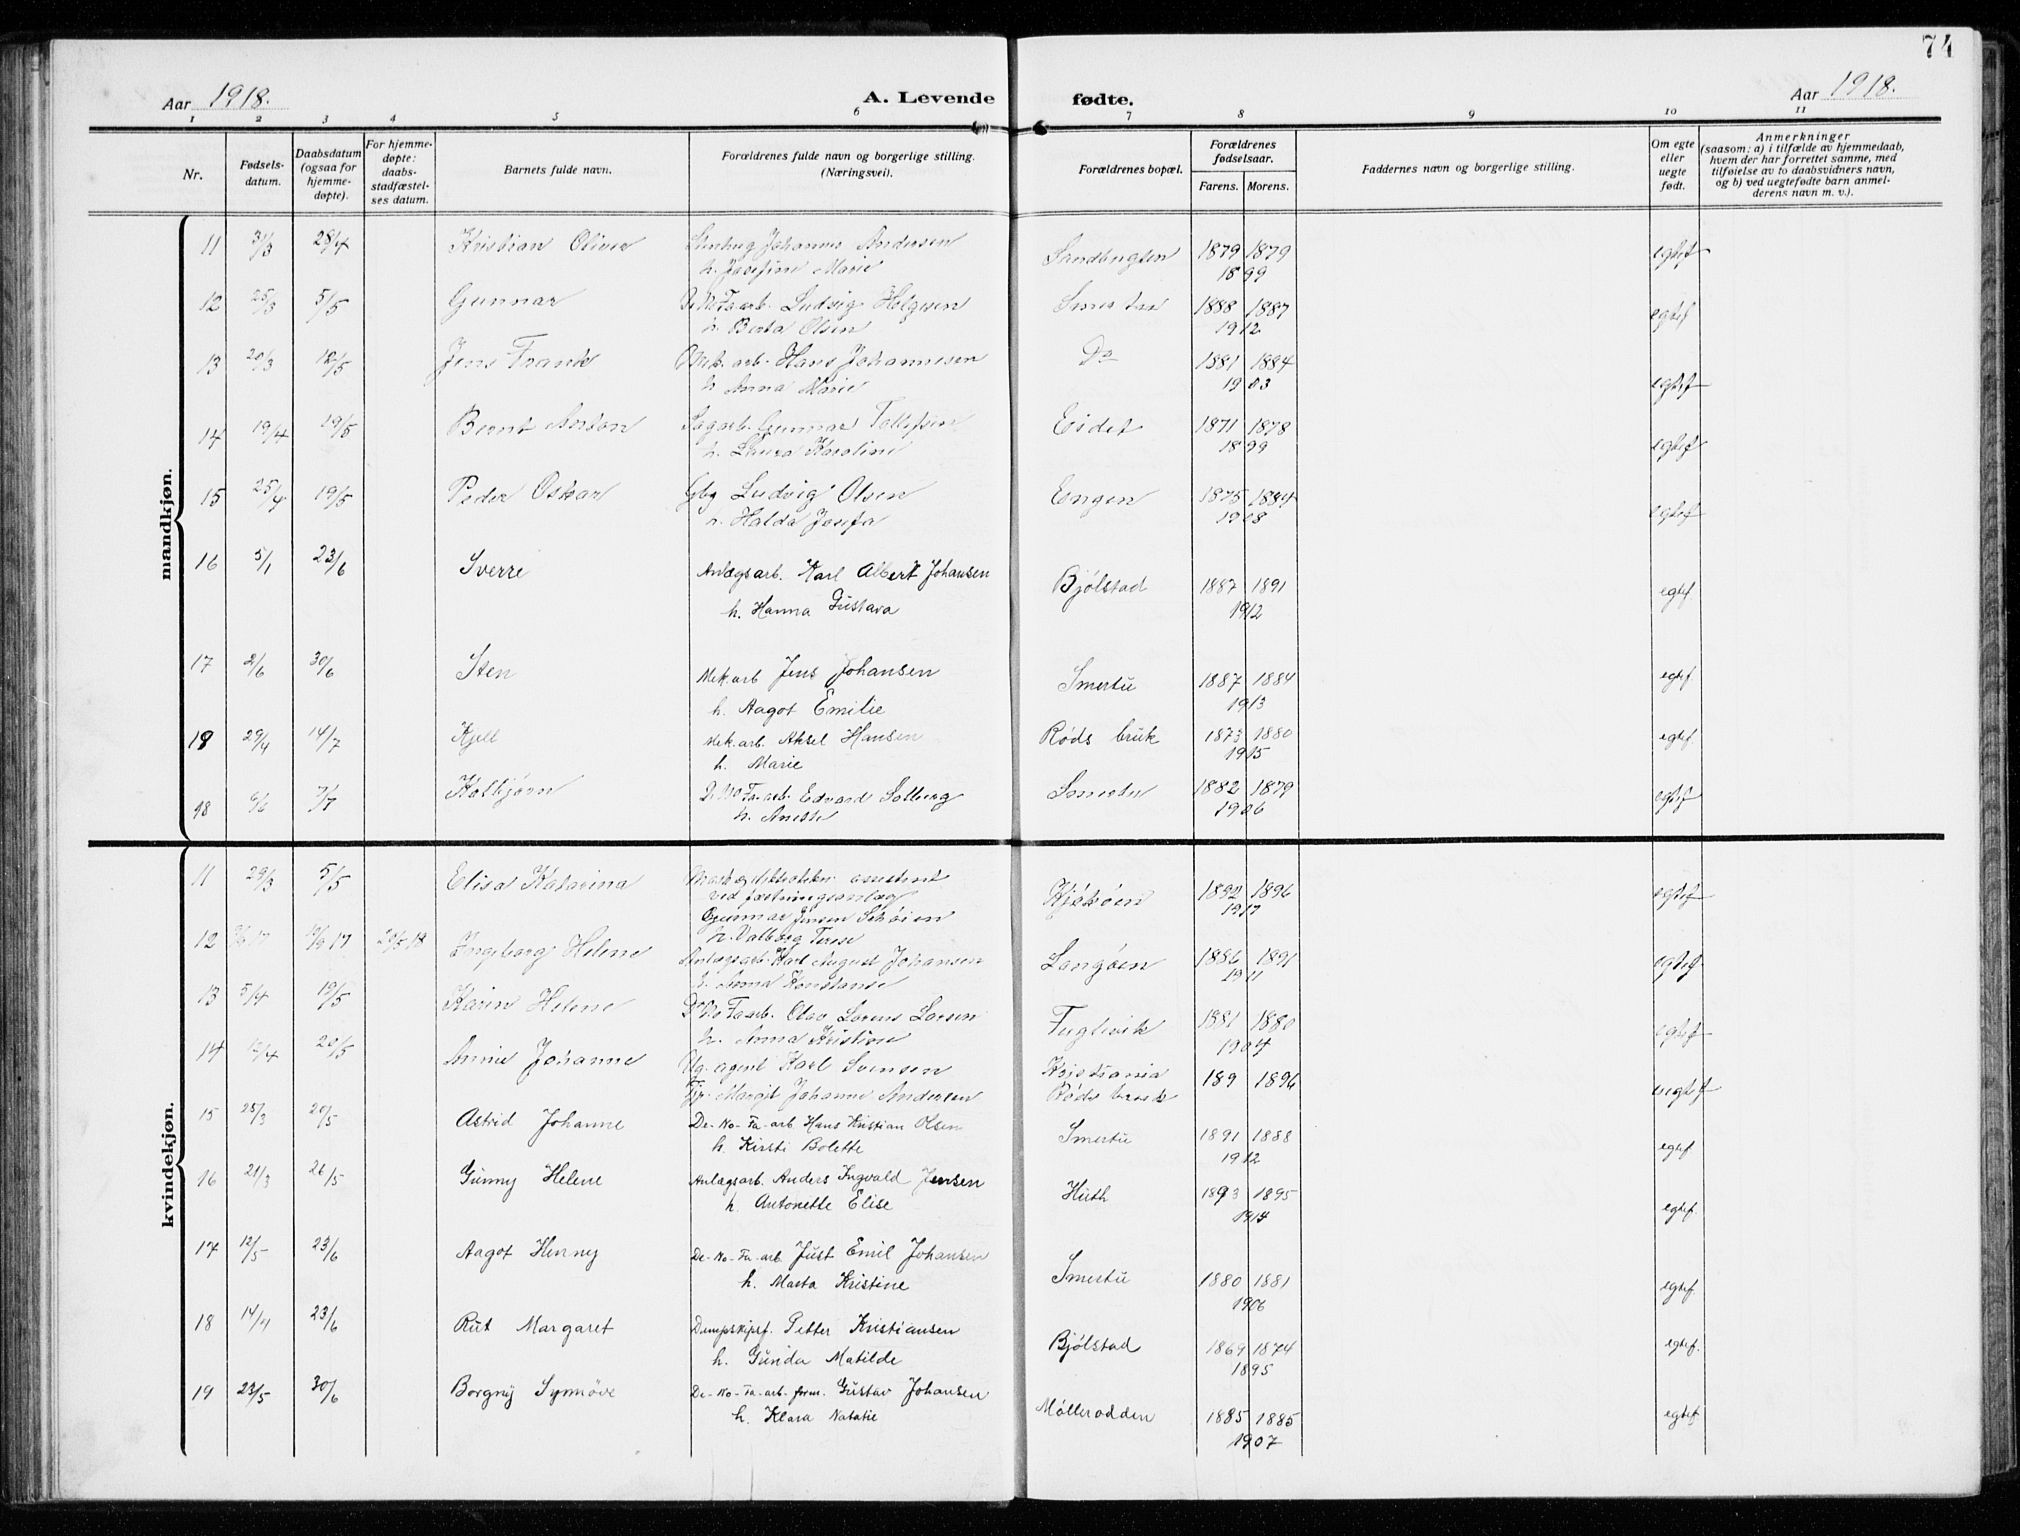 74
Aar 1918.
A. Levende fødte.
Aar 1918.
1 2 3 4 5 6 7 8 9 10 11
Nr.
Fødsels-
datum.
Daabsdatum
(ogsaa for
hjemme-
døpte).
For hjemme-
døpte:
daabs-
stadfæstel-
ses datum.
Barnets fulde navn.
Forældrenes fulde navn og borgerlige stilling.
(Næringsvei).
Forældrenes bopæl.
Forældrenes
fødselsaar.
Farens. Morens.
Faddernes navn og borgerlige stilling.
Om egte
eller
uegte
født.
Anmerkninger
(saasom: a) i tilfælde av hjemmedaab,
hvem der har forrettet samme, med
tilføielse av to daabsvidners navn,
og b) ved uegtefødte barn anmel-
derens navn m. v.).
mandkjøn.
11 31/3 28/4 Kristian Oliver Stenhug Johannes Andersen 1879 1879 egtef
h. Josefine Marie 1899
12 25/3 5/5 Gunnar De No Fa arb. Ludvig Holgersen 1888 1887 egtef
h. Berta Olsen 1912
13 20/3 18/5 Jens Frank Mek. arb. Hans Johannesen Do 1881 1884 egtef
h. Anna Marie 1903
14 19/4 19/5 Bernt Anton Sagarb. Gunnar Tollefsen Eidet 1871 1878 egtef
h. Laura Karoline 1899
15 25/4 19/5 Peder Oskar Gbg Ludvig Olsen Engen 1875 1884 egtef
h. Halda Josefa 1908
16 5/1 23/6 Sverre Anlægsarb. Karl Albert Johansen Bjølstad 1887 1891 egtef.
h. Hanna Gustava 1912
17 2/6 30/6 Sten Mek.arb Jens Johansen Smertu 1887 1884 egtef
h. Aagot Emilie 1913
18 29/4 14/7 Kjell Mek.arb. Aksel Hansen Røds bruk 1873 1880 egtef.
h. Marie 1915
18 6/6 7/7 Kolbjørn De No Fa. arb. Edvard Solberg Smertu 1882 1879 egtef
h. 1906
kvindekjøn.
11 29/3 5/5 Elisa Katarina assistent Kjøkøen 1892 1896 egtef
ved fæstningsanlæg 1917
Gunnar Jensen Schøien
h. Valborg Terese
12 19/9 17 29/5 18 Ingeborg Helene Anlægsarb. Karl August Johansen Langøen 1886 1891 egtef
h. Anna Konstanse 1911
13 5/4 19/5 Karin Helene De No Fa arb. Olav Lorens Larsen Fuglevik 1881 1880 egtef
h. Anna Kristine 1904
14 12/4 20/5 Annie Johanne agent Karl Svensen Kristiania 189 1896 uegtef
Margit Johanne Andersen Røds bruk
15 25/3 20/5 Astrid Johanne De-No-Fa-arb Hans Kristian Olsen Smertu 1891 1888 egtef
h. Kirsti Bolette 1912
16 21/3 26/5 Gunny Helene Anlægsarb. Anders Ingvald Jensen Huth 1893 1895 egtef.
h. Antonette Elise 1914
17 12/5 23/6 Aagot Henny De-No-Fa-arb Just Emil Johansen Smertu 1880 1881 egtef
h. Marta Kristine 1906
18 14/4 23/6 Rut Margaret Dampskipsf. Petter Kristiansen Bjølstad 1869 1874 egtef.
h. Gunda Matilde 1895
19 23/5 30/6 Borgny Synnøve De-No-Fa-arb. form. Gustav Johansen Møllerodden 1885 1885 egtef.
h. Klara Natalie 1907